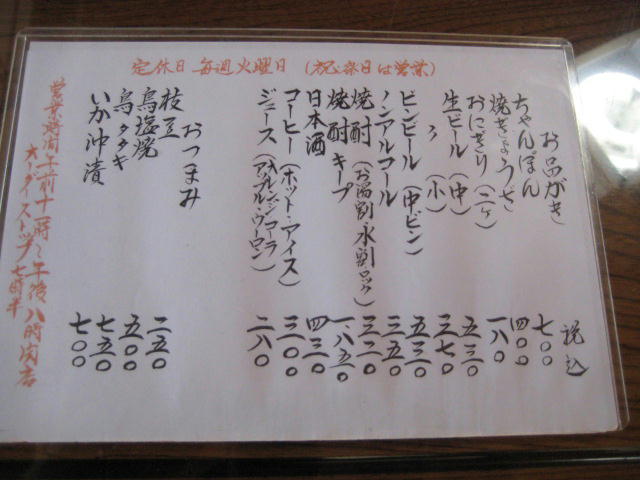 定休日 毎週火曜日 (祝祭日は営業)
お品がき 税込
ちゃんぽん 七〇〇
焼ぎょうざ 四〇〇
おにぎり(二ヶ) 一八〇
生ビール(中) 五三〇
〃(小) 三七〇
ビンビール(中ビン) 五三〇
ノンアルコール 三五〇
焼酎(お湯割・水割・ロック) 三二〇
焼酎キープ 一、八五〇
日本酒 四三〇
コーヒー(ホット・アイス) 三〇〇
ジュース(オレンジ・コーラ アップル・ウーロン) 二八〇
おつまみ
枝豆 二五〇
鳥塩焼 五〇〇
鳥タタキ 七五〇
いか沖漬 七〇〇
営業時間 午前十一時〜午後八時閉店
オーダーストップ七時半